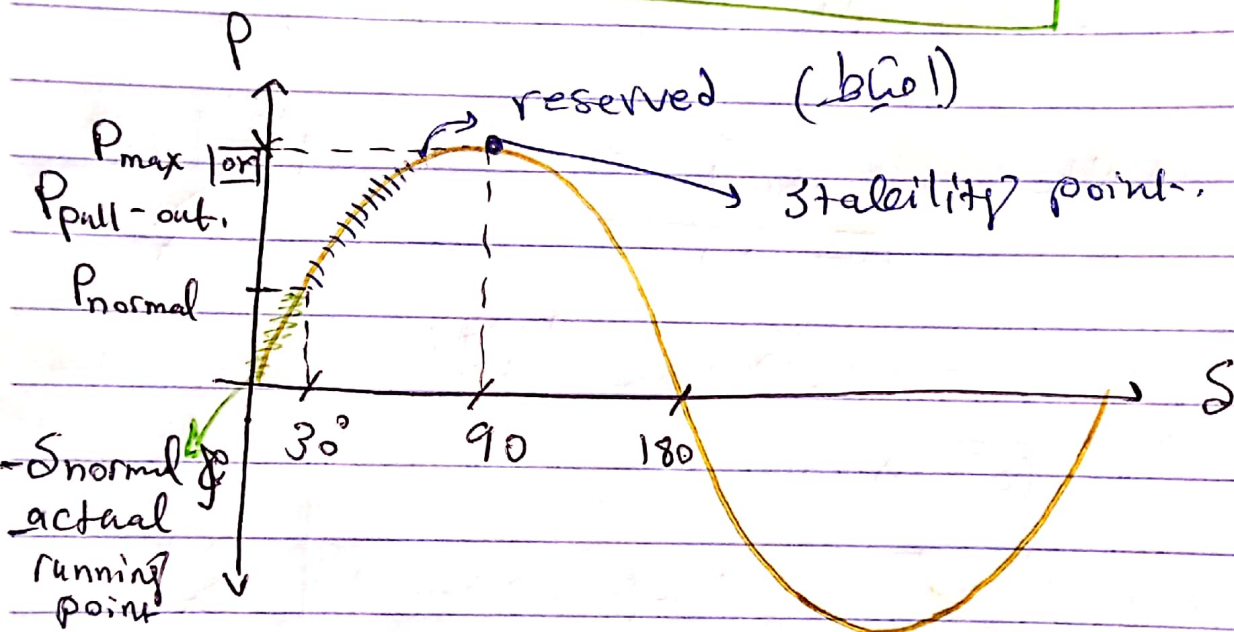 P
reserved (احتياط)
Pmax or
Ppull-out.
Stability point.
Pnormal
δ
30° 90 180
-δnormal &
actual
running
point